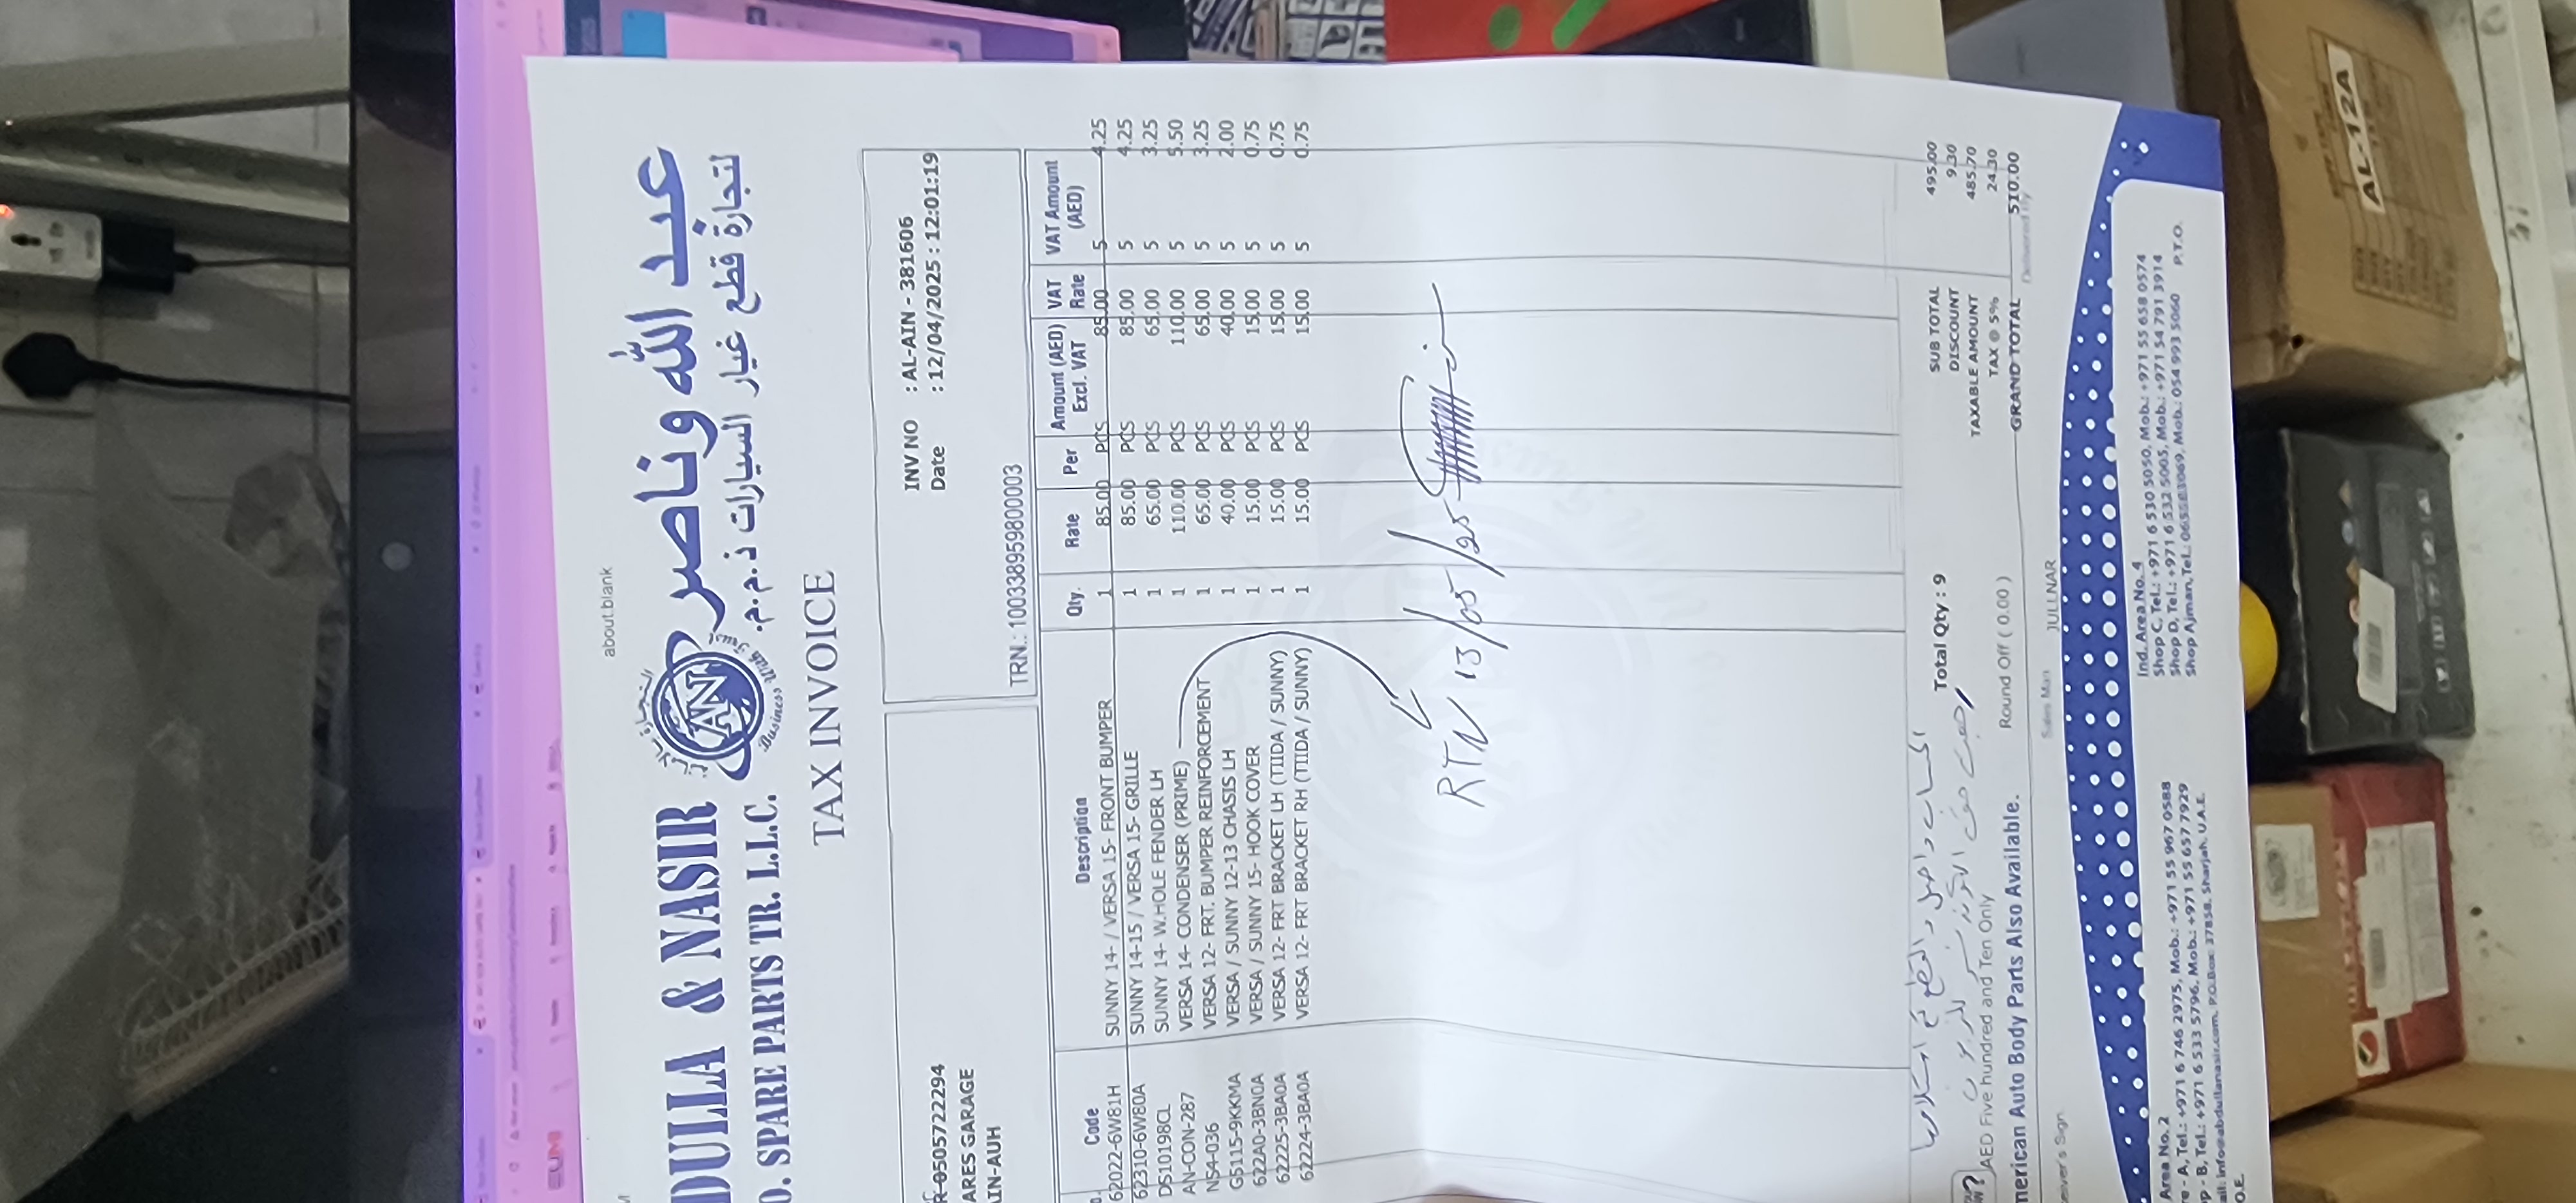 about:blank
DULLA & NASIR
عبد الله وناصر
O. SPARE PARTS TR. L.L.C.
لتجارة قطع غيار السيارات ذ.م.م.
AN
Business With Trust
TAX INVOICE
R-0505722294
ARES GARAGE
AIN-AUH
INV NO : AL-AIN - 381606
Date : 12/04/2025 : 12:01:19
TRN.: 100338959800003
Code Description Qty. Rate Per Amount (AED) Excl. VAT VAT Rate VAT Amount (AED)
62022-6W81H SUNNY 14- / VERSA 15- FRONT BUMPER 1 85.00 PCS 85.00 5 4.25
62310-6W80A SUNNY 14-15 / VERSA 15- GRILLE 1 85.00 PCS 85.00 5 4.25
DS10198CL SUNNY 14- W.HOLE FENDER LH 1 65.00 PCS 65.00 5 3.25
AN-CON-287 VERSA 14- CONDENSER (PRIME) 1 110.00 PCS 110.00 5 5.50
NS4-036 VERSA 12- FRT. BUMPER REINFORCEMENT 1 65.00 PCS 65.00 5 3.25
G5115-9KKMA VERSA / SUNNY 12-13 CHASIS LH 1 40.00 PCS 40.00 5 2.00
622A0-3BN0A VERSA / SUNNY 15- HOOK COVER 1 15.00 PCS 15.00 5 0.75
62225-3BA0A VERSA 12- FRT BRACKET LH (TIIDA / SUNNY) 1 15.00 PCS 15.00 5 0.75
62224-3BA0A VERSA 12- FRT BRACKET RH (TIIDA / SUNNY) 1 15.00 PCS 15.00 5 0.75
RTN 13/05/25
Total Qty : 9
SUB TOTAL 495.00
DISCOUNT 9.30
TAXABLE AMOUNT 485.70
TAX @ 5% 24.30
AED Five hundred and Ten Only
Round Off ( 0.00 )
GRAND TOTAL 510.00
merican Auto Body Parts Also Available.
Delivered By
eiver's Sign
Sales Man JULLNAR
Area No. 2
re - A, Tel.: +971 6 746 2975, Mob.: +971 55 967 0588
op - B, Tel.: +971 6 533 5796, Mob.: +971 55 657 7929
ail: info@abdullanasir.com, P.O.Box: 37858, Sharjah, U.A.E.
Ind. Area No. 4
Shop C, Tel.: +971 6 530 5050, Mob.: +971 55 658 0574
Shop D, Tel.: +971 6 532 5005, Mob.: +971 54 791 3914
Shop Ajman, Tel.: 065583069, Mob.: 054 993 5060
P.T.O.
O.E.
AL-12A